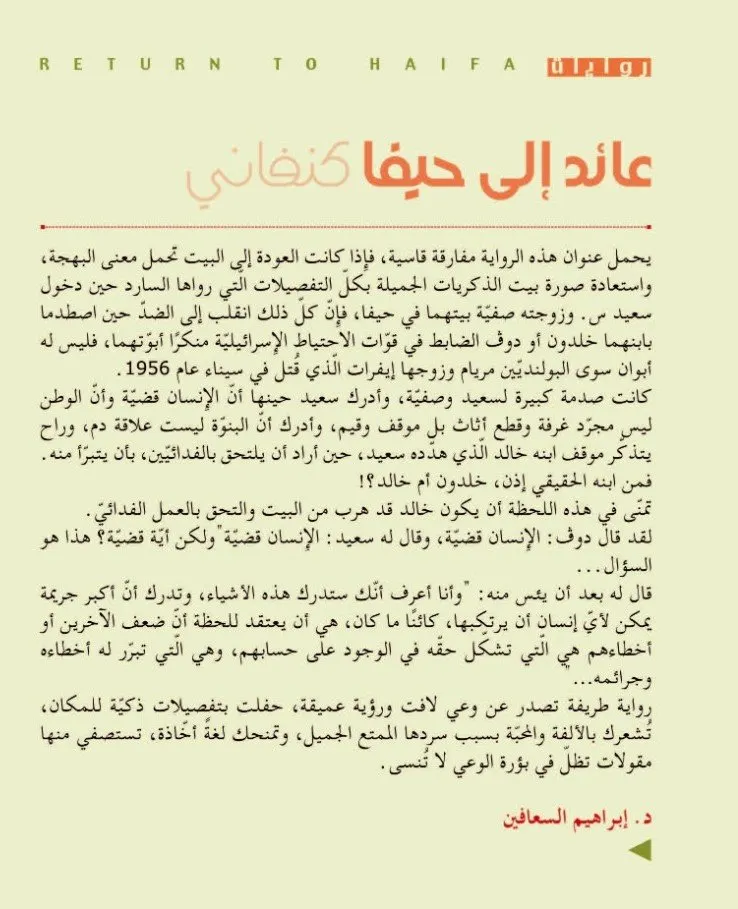 RETURN TO HAIFA روايات
عائد إلى حيفا كنفاني
يحمل عنوان هذه الرواية مفارقة قاسية، فإذا كانت العودة إلى البيت تحمل معنى البهجة،
واستعادة صورة بيت الذكريات الجميلة بكلّ التفصيلات الّتي رواها السارد حين دخول
سعيد س. وزوجته صفيّة بيتهما في حيفا، فإنّ كلّ ذلك انقلب إلى الضدّ حين اصطدما
بابنهما خلدون أو دوڤ الضابط في قوّات الاحتياط الإسرائيليّة منكرًا أبوّتهما، فليس له
أبوان سوى البولنديّين مريام وزوجها إيفرات الّذي قُتل في سيناء عام 1956.
كانت صدمة كبيرة لسعيد وصفيّة، وأدرك سعيد حينها أنّ الإنسان قضيّة وأنّ الوطن
ليس مجرّد غرفة وقطع أثاث بل موقف وقيم، وأدرك أنّ البنوّة ليست علاقة دم، وراح
يتذكّر موقف ابنه خالد الّذي هدّده سعيد، حين أراد أن يلتحق بالفدائيّين، بأن يتبرّأ منه.
فمن ابنه الحقيقي إذن، خلدون أم خالد؟!
تمنّى في هذه اللحظة أن يكون خالد قد هرب من البيت والتحق بالعمل الفدائيّ.
لقد قال دوڤ: الإنسان قضيّة، وقال له سعيد: الإنسان قضيّة"ولكن أيّة قضيّة؟ هذا هو
السؤال...
قال له بعد أن يئس منه: "وأنا أعرف أنّك ستدرك هذه الأشياء، وتدرك أنّ أكبر جريمة
يمكن لأيّ إنسان أن يرتكبها، كائنًا ما كان، هي أن يعتقد للحظة أنّ ضعف الآخرين أو
أخطاءهم هي الّتي تشكّل حقّه في الوجود على حسابهم، وهي الّتي تبرّر له أخطاءه
وجرائمه..."
رواية طريفة تصدر عن وعي لافت ورؤية عميقة، حفلت بتفصيلات ذكيّة للمكان،
تُشعرك بالألفة والمحبّة بسبب سردها الممتع الجميل، وتمنحك لغةً أخّاذة، تستصفي منها
مقولات تظلّ في بؤرة الوعي لا تُنسى.
د. إبراهيم السعافين